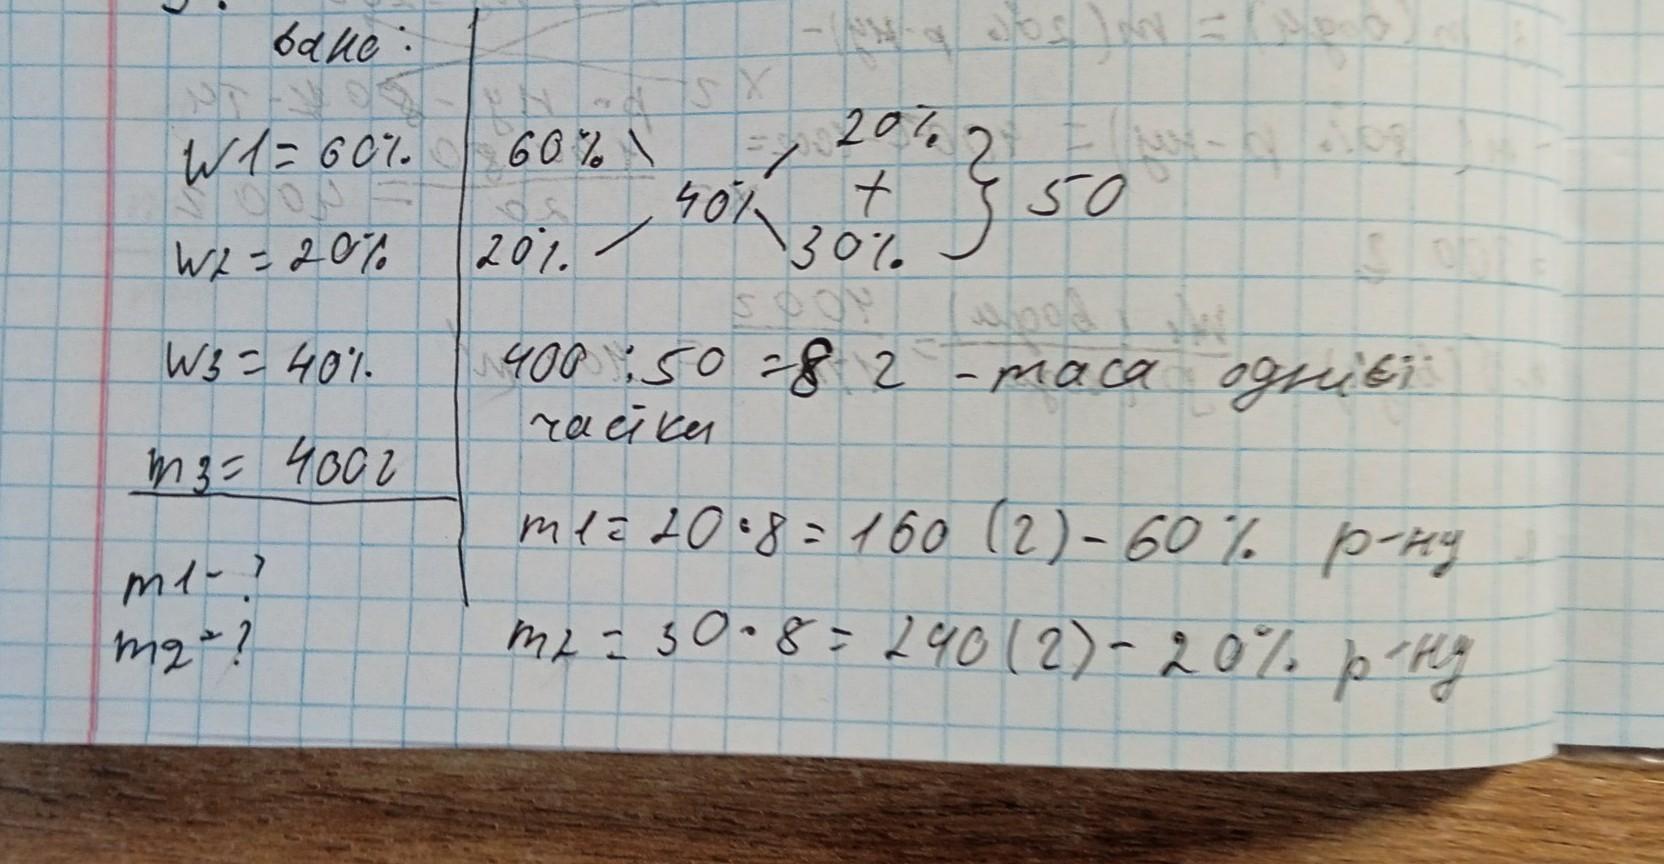 дано:
W1 = 60%
W2 = 20%
W3 = 40%
m3 = 400г
m1 - ?
m2 - ?
60% 20%
40% + } 50
20% 30%
400 : 50 = 8 г - маса однієї
частки
m1 = 20 • 8 = 160 (г) - 60% р-ну
m2 = 30 • 8 = 240 (г) - 20% р-ну